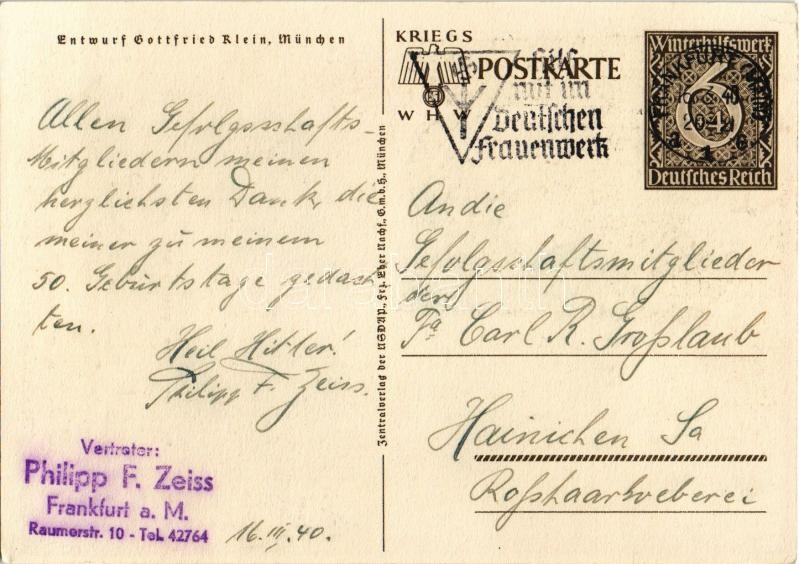 Entwurf Gottfried Klein, München
Allen Gefolgsschafts-
Mitgliedern meinen
herzlichsten Dank, die
meiner zu meinem
50. Geburtstage gedach
ten.
Heil Hitler!
Philipp F. Zeiss.
Vertreter:
Philipp F. Zeiss
Frankfurt a. M.
Raumerstr. 10 - Tel. 42764
16.III.40.
Zentralverlag der NSDAP., Frz. Eher Nachf., G.m.b.H., München
KRIEGS
POSTKARTE
WHW
Hilf
mit im
Deutschen
Frauenwerk
Winterhilfswerk
6
Deutsches Reich
FRANKFURT (MAIN)
40
An die
Gefolgschaftsmitglieder
der
Fa Carl R. Großlaub
Hainichen Sa
Roßhaarweberei
darabanth